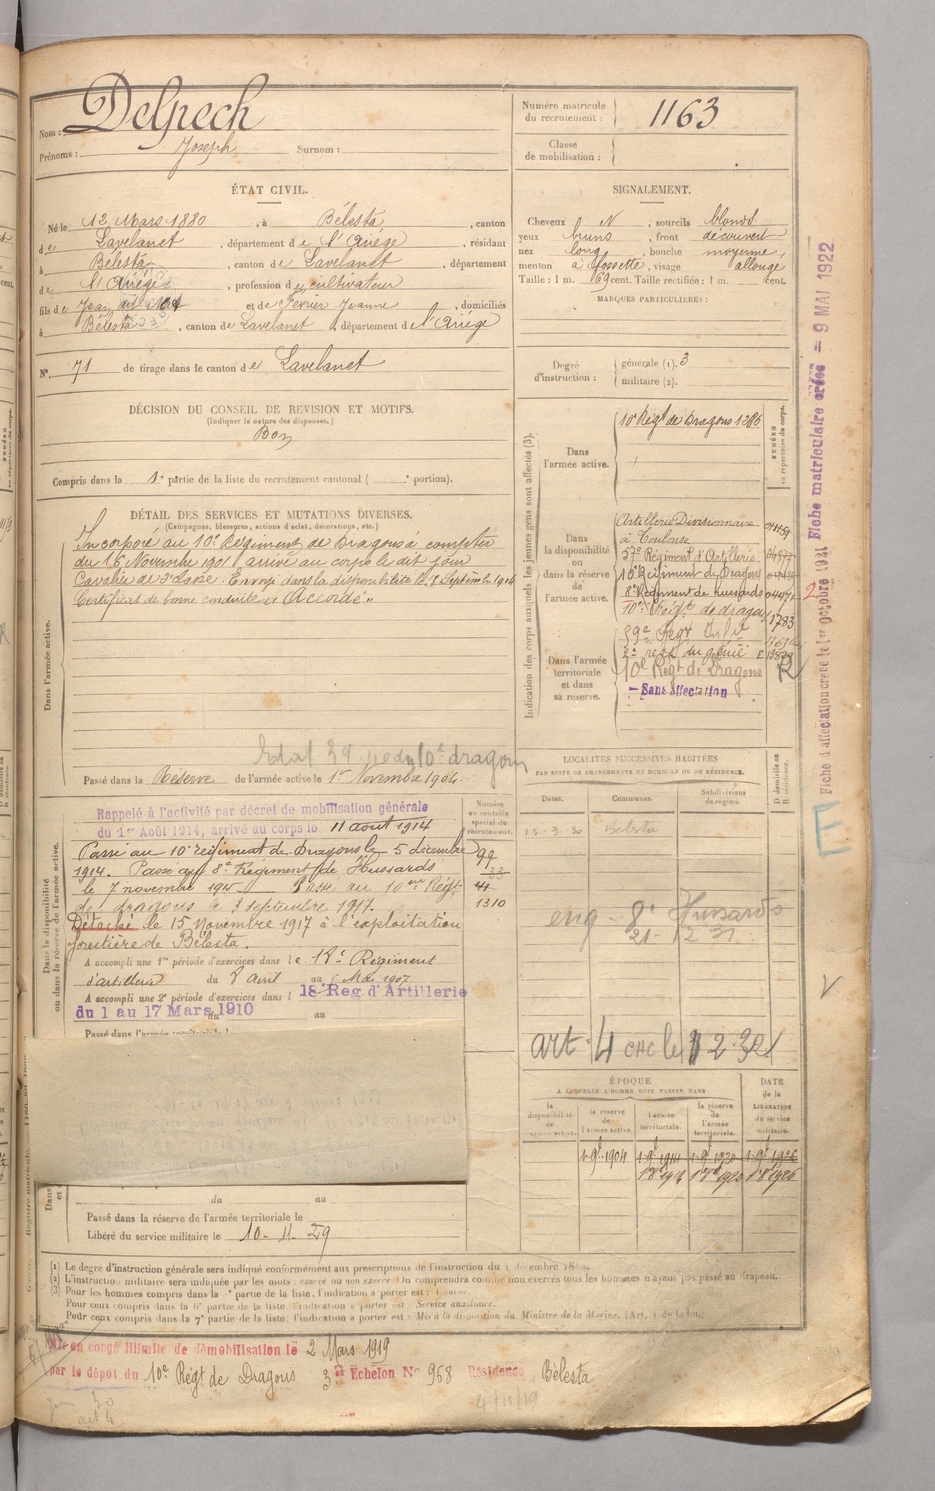 Nom : Delpech
Prénoms : Joseph Surnom :
Numéro matricule du recrutement : 1163
Classe de mobilisation :
ÉTAT CIVIL.
Né le 12 Mars 1880, à Bélesta, canton
de Lavelanet, département de l'Ariège, résidant
à Bélesta, canton de Lavelanet, département
de l'Ariège, profession de cultivateur
fils de Jean et de Février Jeanne, domiciliés
à Bélesta, canton de Lavelanet, département de l'Ariège
N° 71 de tirage dans le canton de Lavelanet
SIGNALEMENT.
Cheveux N, sourcils blonds
yeux bruns, front découvert
nez long, bouche moyenne,
menton à fossette, visage allongé
Taille : 1 m. 69 cent. Taille rectifiée : 1 m. cent.
MARQUES PARTICULIÈRES :
Degré d'instruction : générale (1). 3
militaire (2).
DÉCISION DU CONSEIL DE REVISION ET MOTIFS.
(Indiquer la nature des dispenses.)
Bon
Compris dans la 1e partie de la liste du recrutement cantonal ( portion).
DÉTAIL DES SERVICES ET MUTATIONS DIVERSES.
(Campagnes, blessures, actions d'éclat, décorations, etc.)
Dans l'armée active.
Incorporé au 10e Régiment de Dragons à compter
du 16 Novembre 1901 arrivé au corps le dit jour
Cavalier de 2e classe. Envoyé dans la disponibilité le 1 Septembre 1904
Certificat de bonne conduite "Accordé"
10e dragons
Passé dans la Réserve de l'armée active le 1er Novembre 1904
Indication des corps auxquels les jeunes gens sont affectés (3).
NUMÉRO au répertoire du corps.
Dans l'armée active.
10e Régt de Dragons 1286
Dans la disponibilité ou dans la réserve de l'armée active.
Artillerie Divisionnaire
à Toulouse
57e Régiment d'Artillerie
10e Régiment de Dragons
8e Régiment de hussards
10e Régt de dragons 1783
Dans l'armée territoriale et dans sa réserve.
59e Régt Infie
2e regt du génie
10e Régt de Dragons R
Sans affectation
Fiche d'affectation créée le 1er octobre 1921 Fiche matriculaire créée = 9 MAI 1922
LOCALITÉS SUCCESSIVES HABITÉES
PAR SUITE DE CHANGEMENTS DE DOMICILE OU DE RÉSIDENCE.
Dates. Communes. Subdivisions de région. D domicile ou R résidence.
Bélesta
8e Hussards
art 4
Dans la disponibilité ou dans la réserve de l'armée active.
Numéro au contrôle spécial du recrutement.
Rappelé à l'activité par décret de mobilisation générale
du 1er Août 1914, arrivé au corps le 11 août 1914
Passé au 10e régiment de Dragons le 5 décembre
1914. Passé au 8e Régiment de Hussards
le 7 novembre 1915 Passé au 10eme Régt
de dragons le 3 septembre 1917. 1310
Détaché le 15 Novembre 1917 à l'exploitation
forestière de Bélesta.
A accompli une 1re période d'exercices dans le 18e Régiment
d'artillerie du 8 avril au 5 Mai 1907
A accompli une 2e période d'exercices dans l 18e Reg d'Artillerie
du 1 au 17 Mars 1910 du au
Passé dans l'armée territoriale l
du au
Passé dans la réserve de l'armée territoriale le
Libéré du service militaire le 10-11-29
ÉPOQUE
À LAQUELLE L'HOMME DOIT PASSER DANS
la disponibilité de l'armée active.
la réserve de l'armée active.
l'armée territoriale.
la réserve de l'armée territoriale.
DATE de la LIBÉRATION du service militaire.
(1) Le degré d'instruction générale sera indiqué conformément aux prescriptions de l'instruction du
(2) L'instruction militaire sera indiquée par les mots : exercé ou non exercé. On comprendra comme non exercés tous les hommes n'ayant pas passé au drapeau.
(3) Pour les hommes compris dans la partie de la liste, l'indication à porter est :
Pour ceux compris dans la 6e partie de la liste, l'indication à porter est : Service auxiliaire.
Pour ceux compris dans la 7e partie de la liste, l'indication à porter est : Mis à la disposition du Ministre de la Marine.
Mis en congé illimité de démobilisation le 2 Mars 1919
par le dépôt du 10e Régt de Dragons 3e Échelon N° 968 Résidence Bélesta
4/11/19
art 4